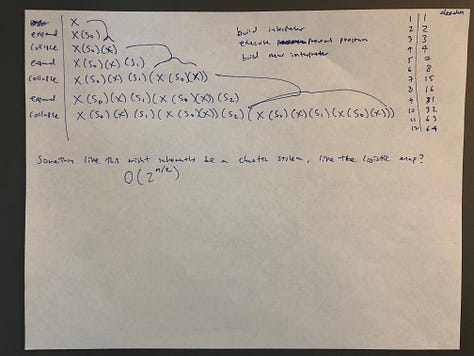 X
expand X(S₀)
collapse X(S₀)(X)
expand X(S₀)(X)(S₁)
collapse X(S₀)(X)(S₁)(X(S₀)(X))
expand X(S₀)(X)(S₁)(X(S₀)(X))(S₂)
collapse X(S₀)(X)(S₁)(X(S₀)(X))(S₂)(X(S₀)(X)(S₁)(X(S₀)(X)))
build interpreter
execute program
build new interpreter
1 1
2 2
3 3
4 4
5 7
6 8
7 15
8 16
9 31
10 32
11 63
12 64
Something like this might inherently be a chaotic system, like the logistic map?
O(2^(n/2))